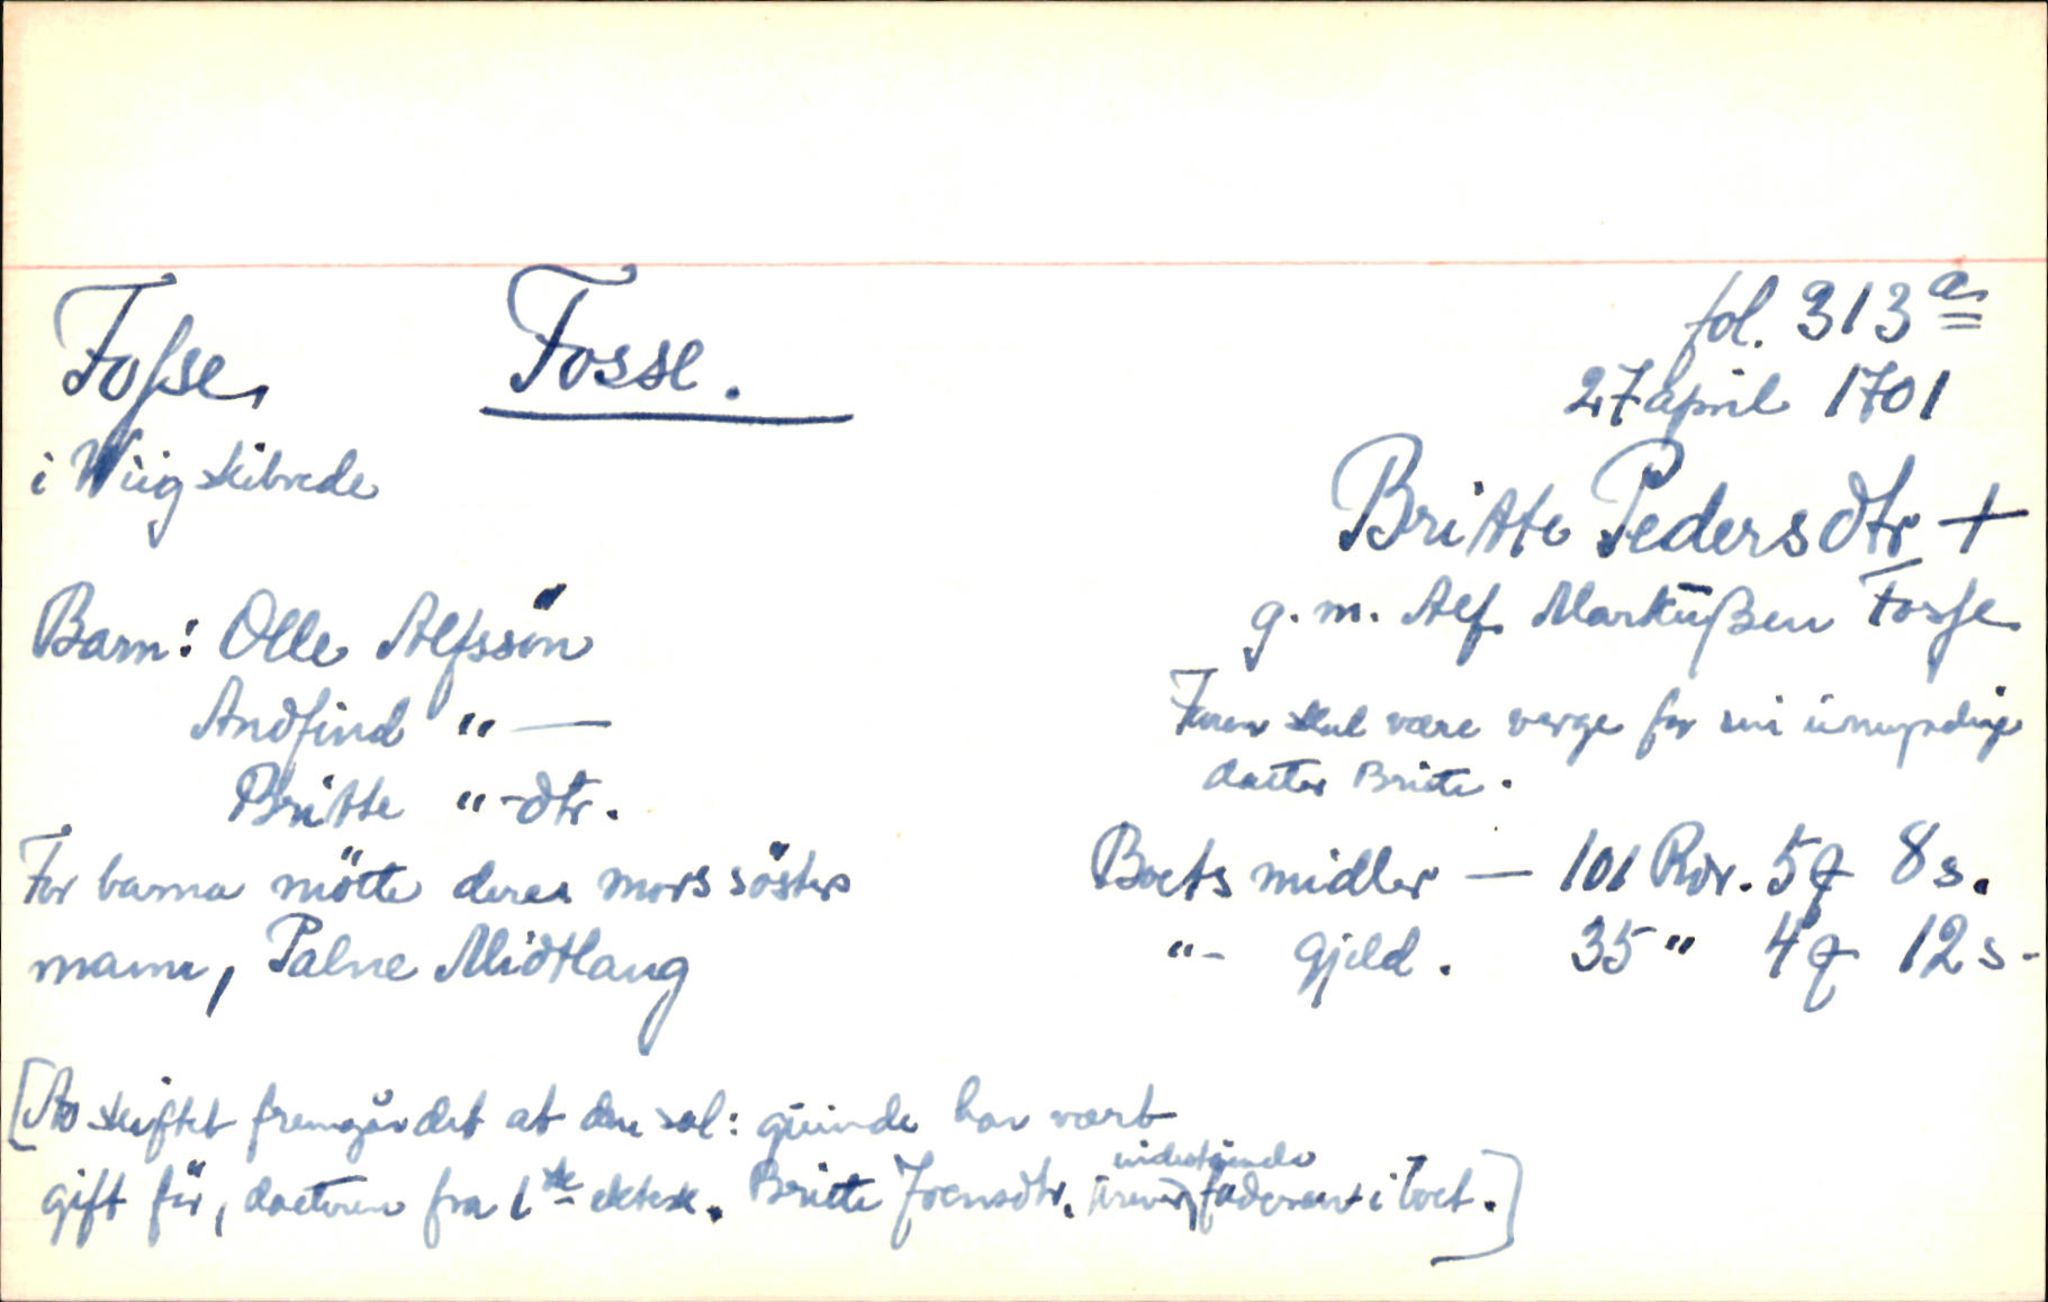 Fosse
Fosse.
fol. 313 a
27 april 1701
i Wiigskibrede
Britte Pedersdtr +
g. m. Alf Markŭßen Fosse
Barn: Olle Alfssön
Andfind " —
Britte "-dtr.
Faren skul være verge for sin ŭmyndige
datter Britte.
For barna mötte deres mors sösters
mann, Palne Midtlaug
Boets midler — 101 Rdr. 5 ꝗ 8 s.
"- Gjeld. 35 " 4 ꝗ 12 s-
[Av skiftet fremgår det at den sal: qŭinde har vært
gift för, datteren fra 1ste ektesk. Britte Joensdtr. krever indestående fadersarv i boet.]